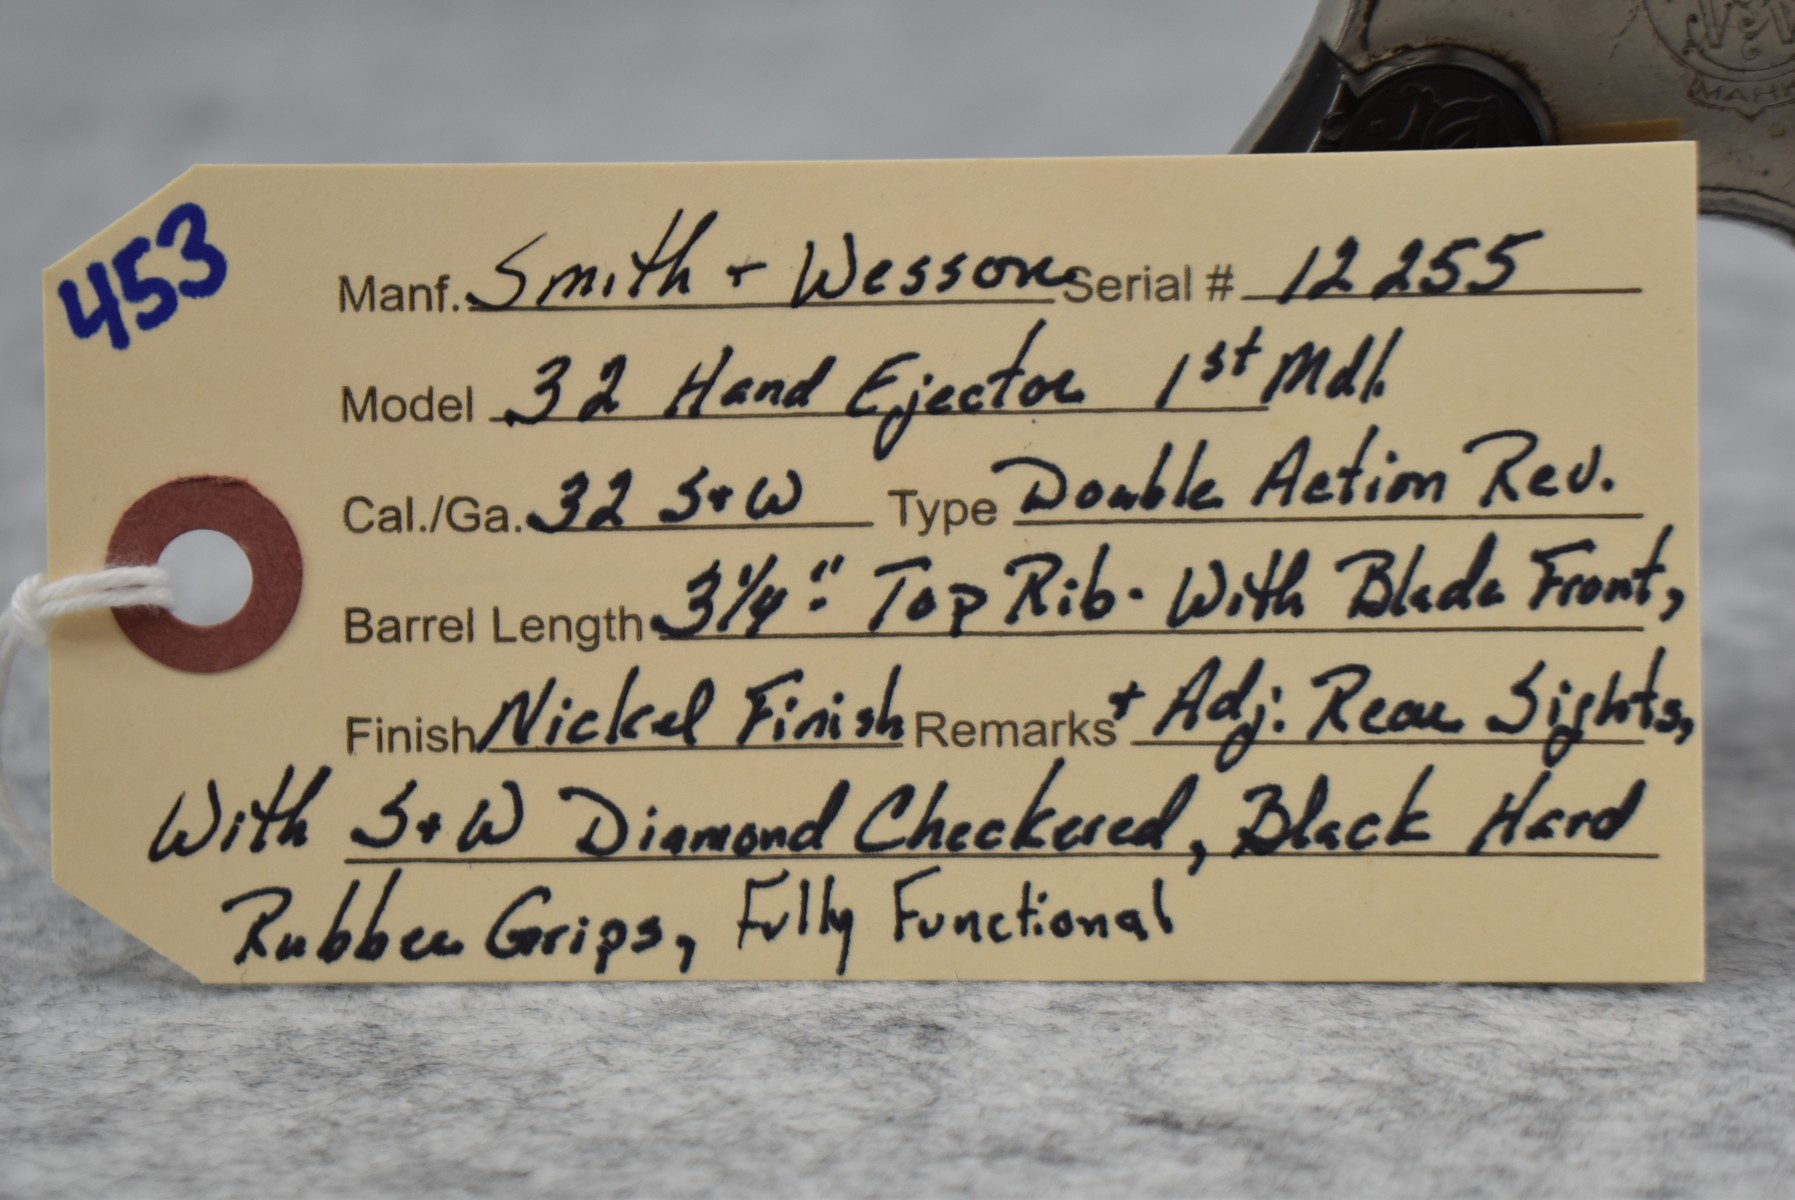 453
Manf. Smith + Wesson Serial # 12255
Model .32 Hand Ejector 1st Mdl.
Cal./Ga. 32 S+W Type Double Action Rev.
Barrel Length 3 1/4" Top Rib- With Blade Front,
Finish Nickel Finish Remarks + Adj. Rear Sights,
With S+W Diamond Checkered, Black Hard
Rubber Grips, Fully Functional